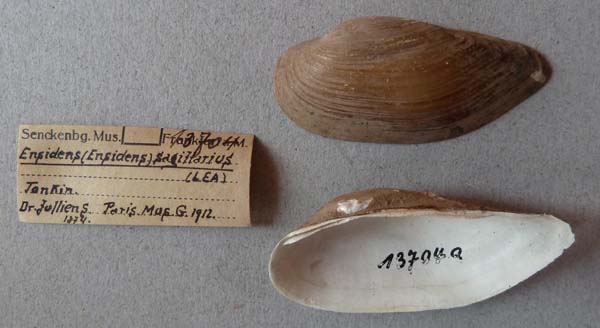 Senckenbg. Mus. Frankfurt a/M.
Ensidens (Ensidens) sagittarius
(LEA)
Tonkin.
Dr. Julliens Paris. Mus. G. 1912.
1874.